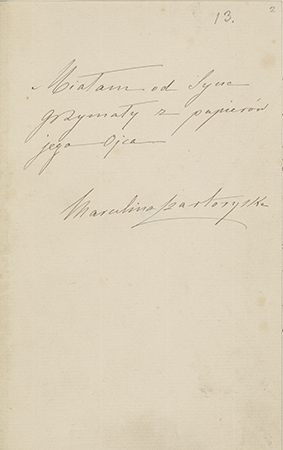 13.
2
Miałam od Syna
Grzymały z papierów
jego Ojca
Marcelina Czartoryska